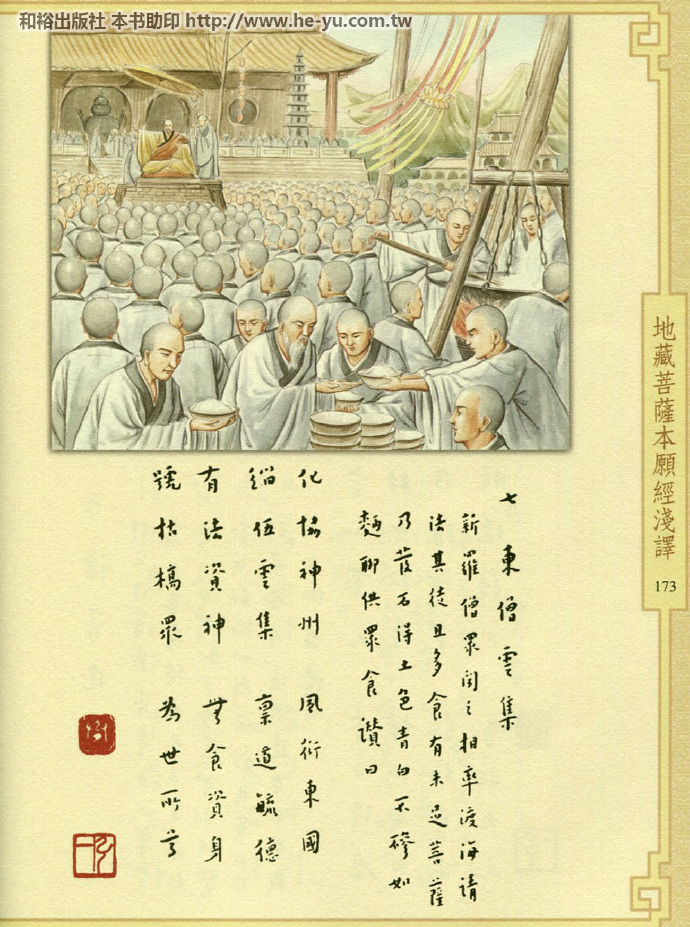 和裕出版社 本书助印 http://www.he-yu.com.tw
七 東僧雲集
新羅僧眾聞之相率渡海請
法其徒且多食有未足菩薩
乃發石得土色青白不磣如
麵聊供眾食讚曰
化協神州 風衍東國
緇伍雲集 稟道毓德
有法資神 無食資身
號枯槁眾 為世所尊
地藏菩薩本願經淺譯
173